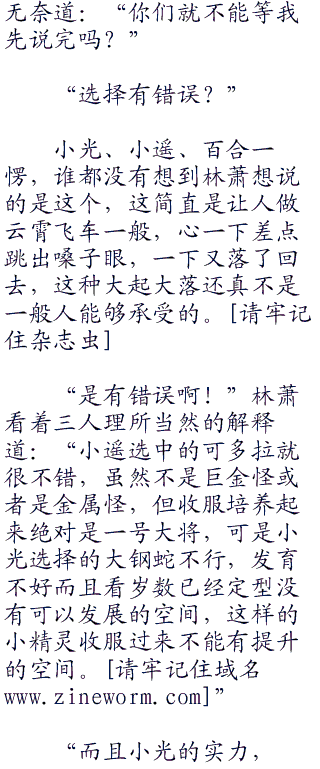 无奈道：“你们就不能等我
先说完吗？”
“选择有错误？”
小光、小遥、百合一
愣，谁都没有想到林萧想说
的是这个，这简直是让人做
云霄飞车一般，心一下差点
跳出嗓子眼，一下又落了回
去，这种大起大落还真不是
一般人能够承受的。[请牢记
住杂志虫]
“是有错误啊！”林萧
看着三人理所当然的解释
道：“小遥选中的可多拉就
很不错，虽然不是巨金怪或
者是金属怪，但收服培养起
来绝对是一号大将，可是小
光选择的大钢蛇不行，发育
不好而且看岁数已经定型没
有可以发展的空间，这样的
小精灵收服过来不能有提升
的空间。[请牢记住域名
www.zineworm.com]”
“而且小光的实力，